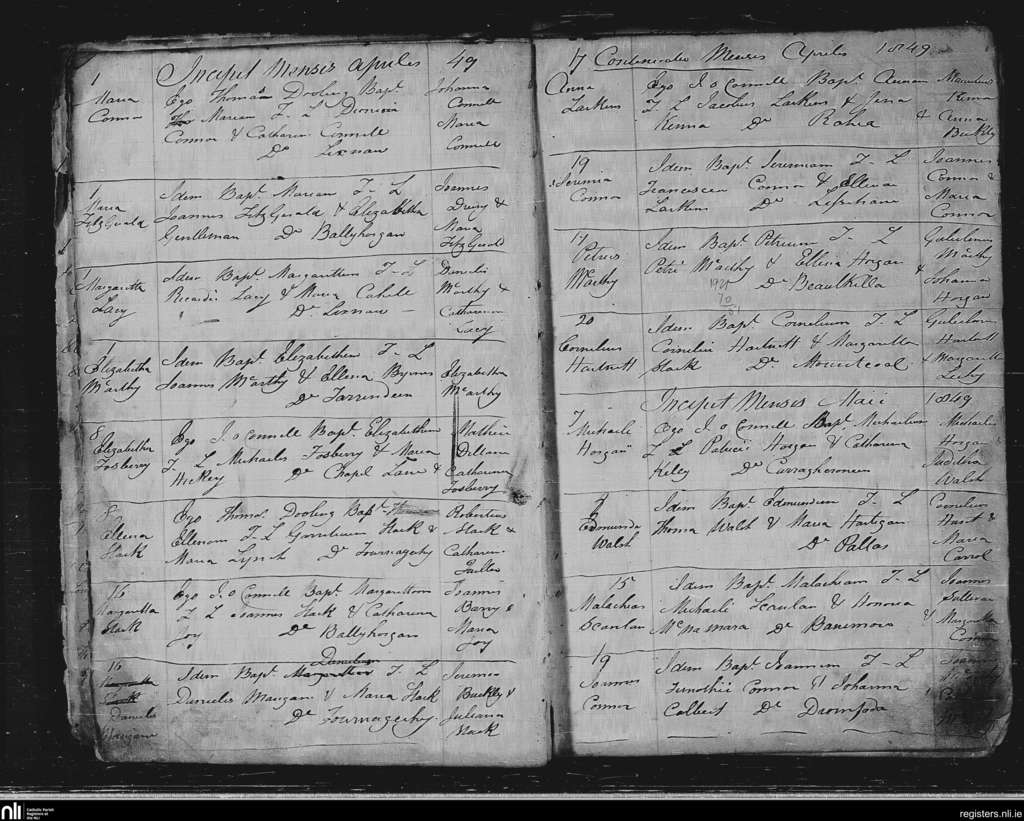 Incipit Mensis Aprilis 49
1
Maria
Connor
Ego Thomas Dooling Bapt
Mariam F - L Dionisii
Connor & Catharin Connell
De Lixnaw
Johanna
Connell
Maria
Connell
1
Maria
FitzGerald
Idem Bapt Mariam F - L
Joannis FitzGerald & Elizabetha
Gentleman De Ballyhorgan
Joannes
&
Maria
FitzGerald
1
Margaretta
Lacy
Idem Bapt Margarettam F - L
Ricardi Lacy & Maria Cahill
De Lixnaw
Daniel
McCarthy &
Catharina
Lacy
1
Elizabetha
McCarthy
Idem Bapt Elizabetham F - L
Joannis McCarthy & Ellena Byrnes
De
Elizabetha
McCarthy
8
Elizabetha
Fosberry
Ego J. O Connell Bapt Elizabetham
F. L Michaelis Fosberry & Maria
Hickey De Chapel Lane &
Dillane
Catharina
Fosberry
8
Ellena
Stack
Ego Thomas Dooling Bapt
Ellenam F - L Stack &
Maria Lynch De Tournageehy
Robertus
Stack &
Catharin
16
Margaretta
Stack
Ego J. O Connell Bapt Margarettam
F L Joannes Stack & Catharina
Joy De Ballyhorgan
Joannes
Barry &
Maria
Joy
16
Danielis
Mangan
Danielum
Idem Bapt F. L
Danielis Mangan & Maria Stack
De Tournageehy
Jeremia
Buckley &
Juliana
Stack
17 Continuatio Mensis Aprilis 1849
Anna
Larkins
Ego J. O Connell Bapt Annam
F L Jacobus Larkins & Jana
Kenna De Rahea
Kenna
& Anna
Buckley
19
Jeremia
Connor
Idem Bapt Jeremiam F - L
Francescus Connor & Ellena
Larkins De
Joannes
Connor &
Maria
Connor
17
Petrus
McCarthy
Idem Bapt Petrum F - L
Petri McCarthy & Ellena Horgan
De Beaulkilla
Gulielmus
McCarthy
&
Johanna
Horgan
20
Cornelius
Hartnett
Idem Bapt Cornelium F - L
Cornelii Hartnett & Margaretta
Stack De Mountcoal
Gulielmus
Hartnett
& Margaretta
Leehy
Incipit Mensis Maii 1849
7
Michaele
Horgan
Ego J. O Connell Bapt Michaelum
F L Patricii Horgan & Catharina
Kelly De
Michaelis
Horgan
Walsh
7
Edmunda
Walsh
Idem Bapt Edmundum F - L
Thoma Walsh & Maria Hartigan
De Pallas
Cornelius
&
Maria
Carrol
15
Malachias
Scanlan
Idem Bapt Malachiam F - L
Michaeli Scanlan & Honora
McNamara De Banemore
Joannes
Sullivan
& Margaretta
Connor
19
Joannes
Connor
Idem Bapt Joannem F - L
Timothii Connor & Johanna
Colbert De
nli Catholic Parish
Registers at
the NLI
registers.nli.ie